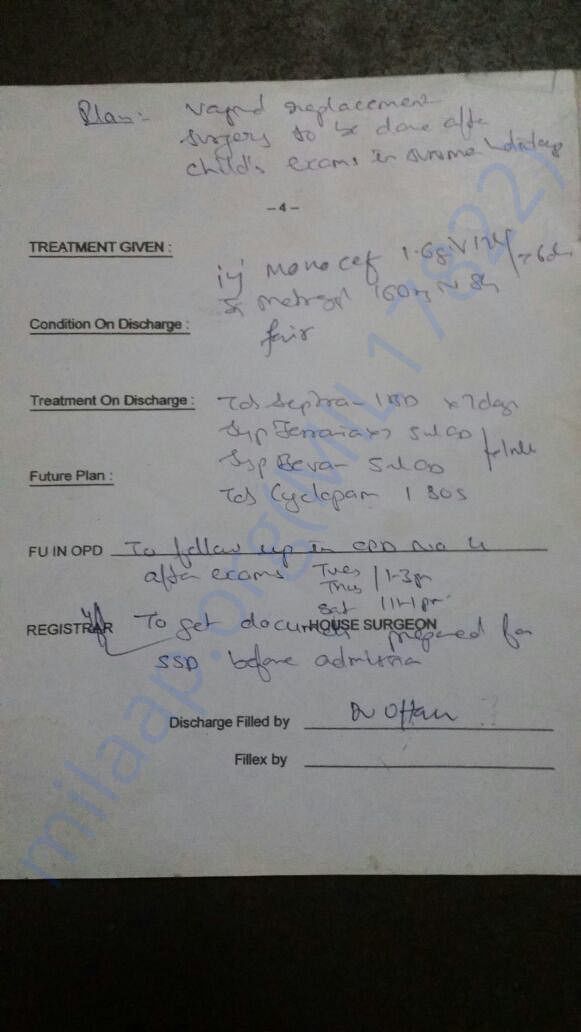 Plan:- Vaginal replacement
surgery to be done after
child's exams in summer
- 4 -
TREATMENT GIVEN :
inj Monocef 1.6g IV 12h
160mg IV 8h
Condition On Discharge :
fair
Treatment On Discharge : Tab Septran 1 BD x 7 days
Syp 5ml OD
Syp 5ml OD
Future Plan :
Tab Cyclopam 1 SOS
FU IN OPD To follow up in OPD No 4
after exams Tues
Thus 1-3pm
Sat 11-1pm
REGISTRAR HOUSE SURGEON
To get document prepared for
SSD before admission
Discharge Filled by Dr
Fillex by
milaap.org(MIL 17822)